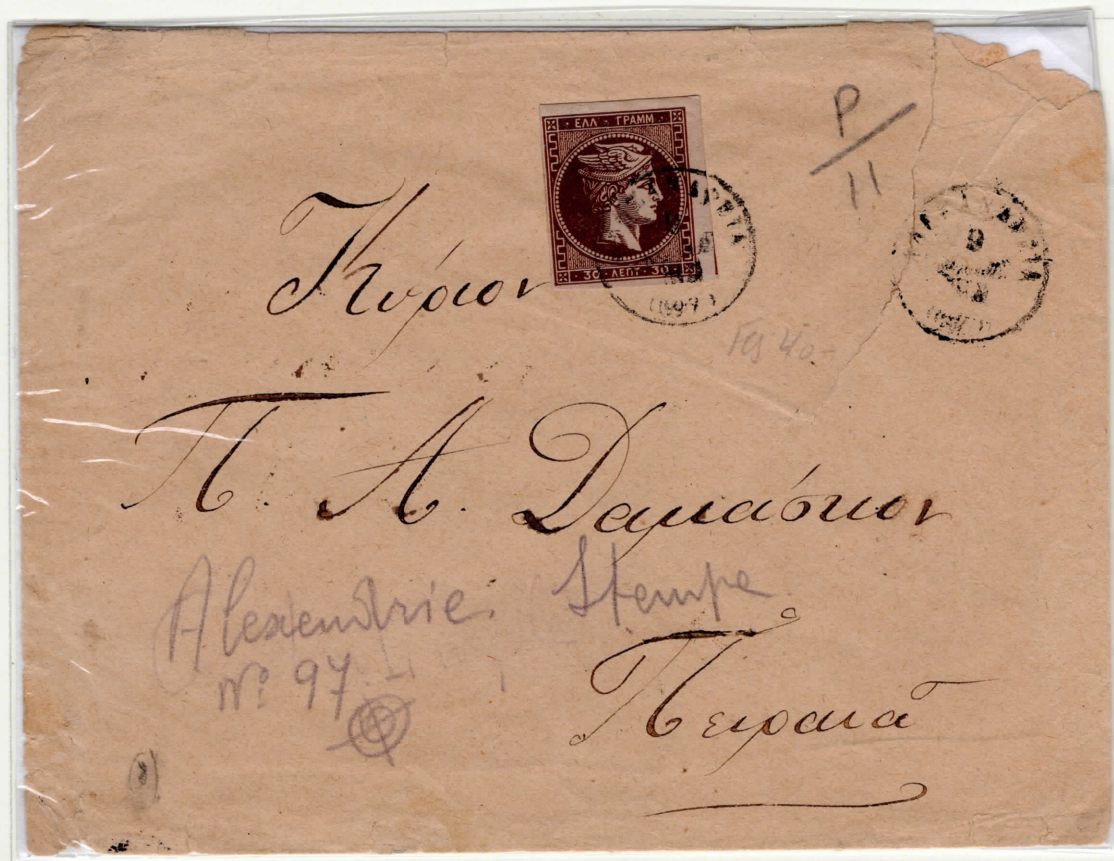 ΕΛΛ · ΓΡΑΜΜ
30 · ΛΕΠΤ · 30
(97)
P/11
9
Κύριον
Π. Α. Δαμάσκον
Alexandrie. Stempe
Nº 97
Πειραιᾶ